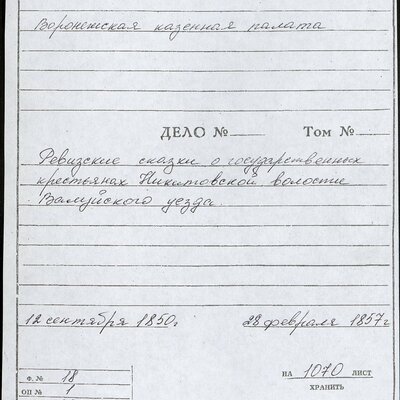 Воронежская казенная палата
ДЕЛО № Том №
Ревизские сказки о государственных
крестьянах Никитовской волости
Валуйского уезда.
12 сентября 1850г 28 февраля 1857г
Ф. № 18
ОП № 1
НА 1070 ЛИСТ
ХРАНИТЬ